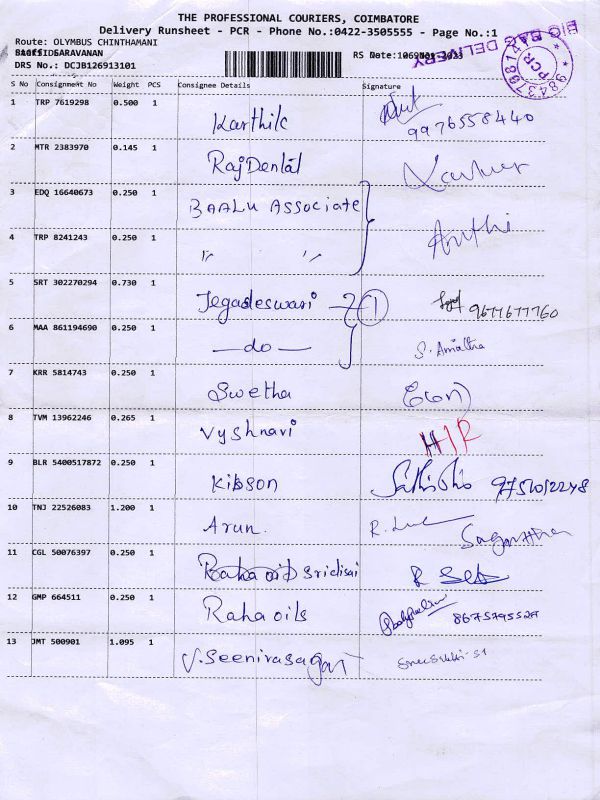 THE PROFESSIONAL COURIERS, COIMBATORE
Delivery Runsheet - PCR - Phone No.:0422-3505555 - Page No.:1
Route: OLYMBUS CHINTHAMANI
SARAVANAN
RS Date:
DRS No.: DCJB126913101
BIG BAG DELIVERY
PCR
S No Consignment No Weight PCS Consignee Details Signature
1 TRP 7619298 0.500 1 Karthik 9976558440
2 MTR 2383970 0.145 1 Raj Dental
3 EDQ 16640673 0.250 1 BAALU Associate
4 TRP 8241243 0.250 1 〃 〃 Aruthi
5 SRT 302270294 0.730 1 Jegadeswari 1 9677677760
6 MAA 861194690 0.250 1 —do— S. Amirtha
7 KRR 5814743 0.250 1 Swetha
8 TVM 13962246 0.265 1 Vyshnavi
9 BLR 5400517872 0.250 1 Kibson
10 TNJ 22526083 1.200 1 Arun.
11 CGL 50076397 0.250 1 sridisai
12 GMP 664511 0.250 1 Raha oils
13 JMT 500901 1.095 1 V. Seenivasagan